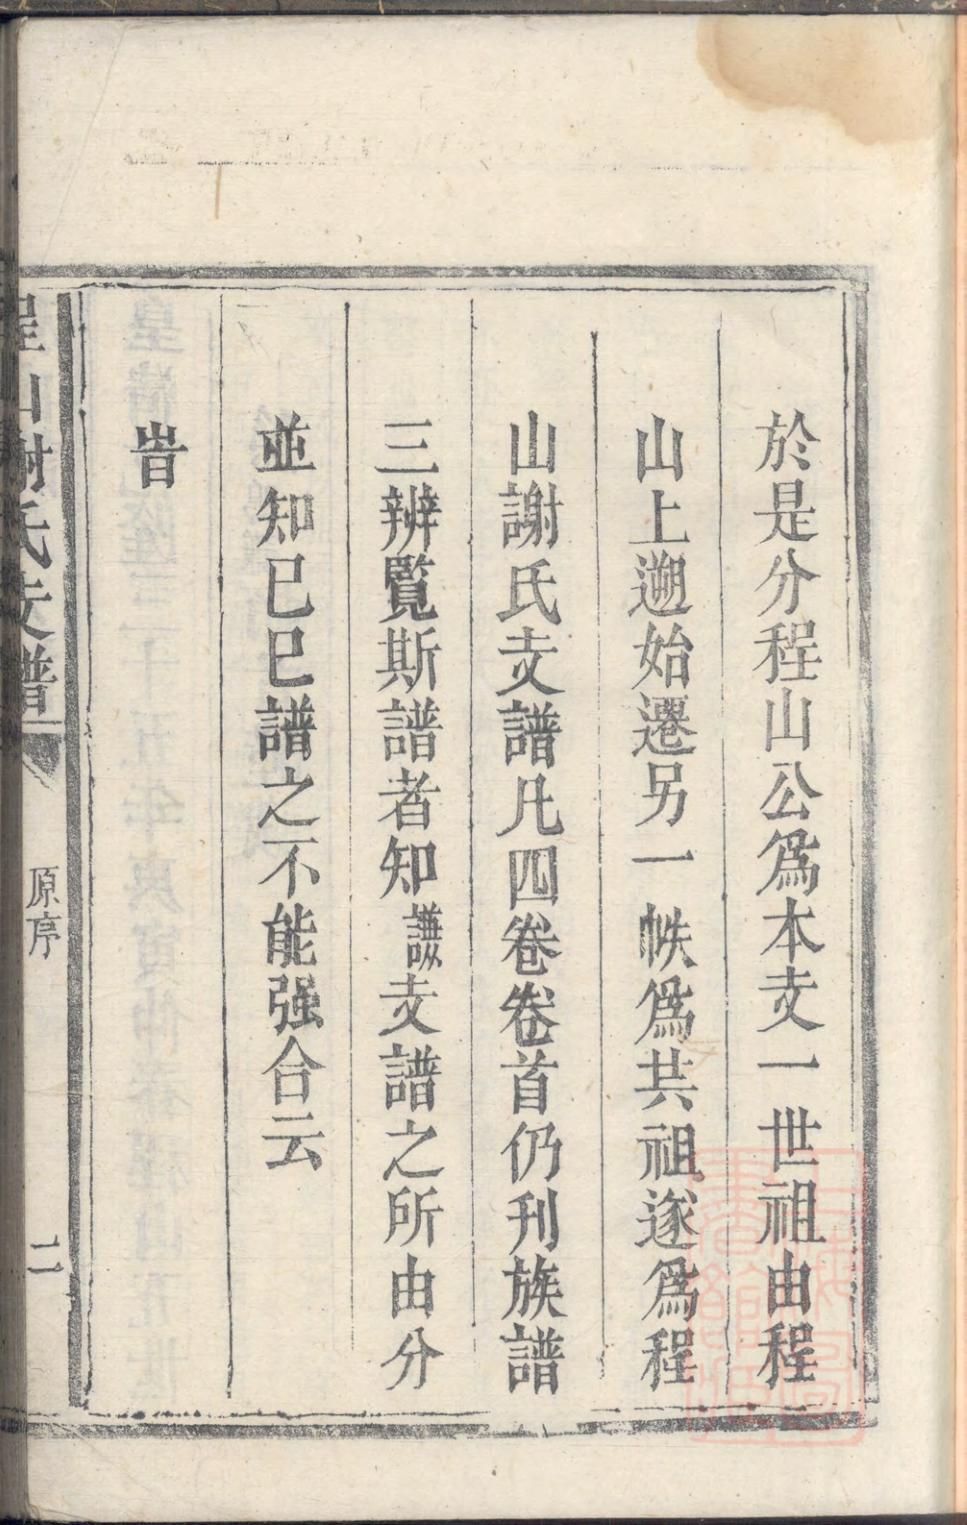 於是分程山公爲本支一世祖由程
山上遡始遷另一帙爲共祖遂爲程
山謝氏支譜凡四卷卷首仍刋族譜
三辨覧斯譜者知謙支譜之所由分
並知已巳譜之不能强合云
旹
程山謝氏支譜
原序
二